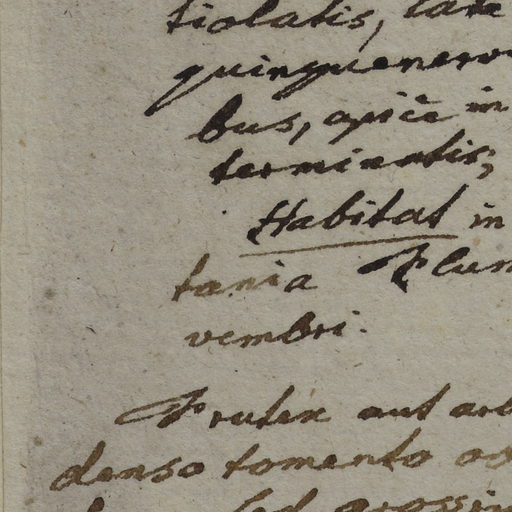 tiolatis, late
quinquenervi
bus, apice in
terminatis;
Habitat in
tania Flum
vembri.
Frutex aut arb
denso tomento
sed grossi